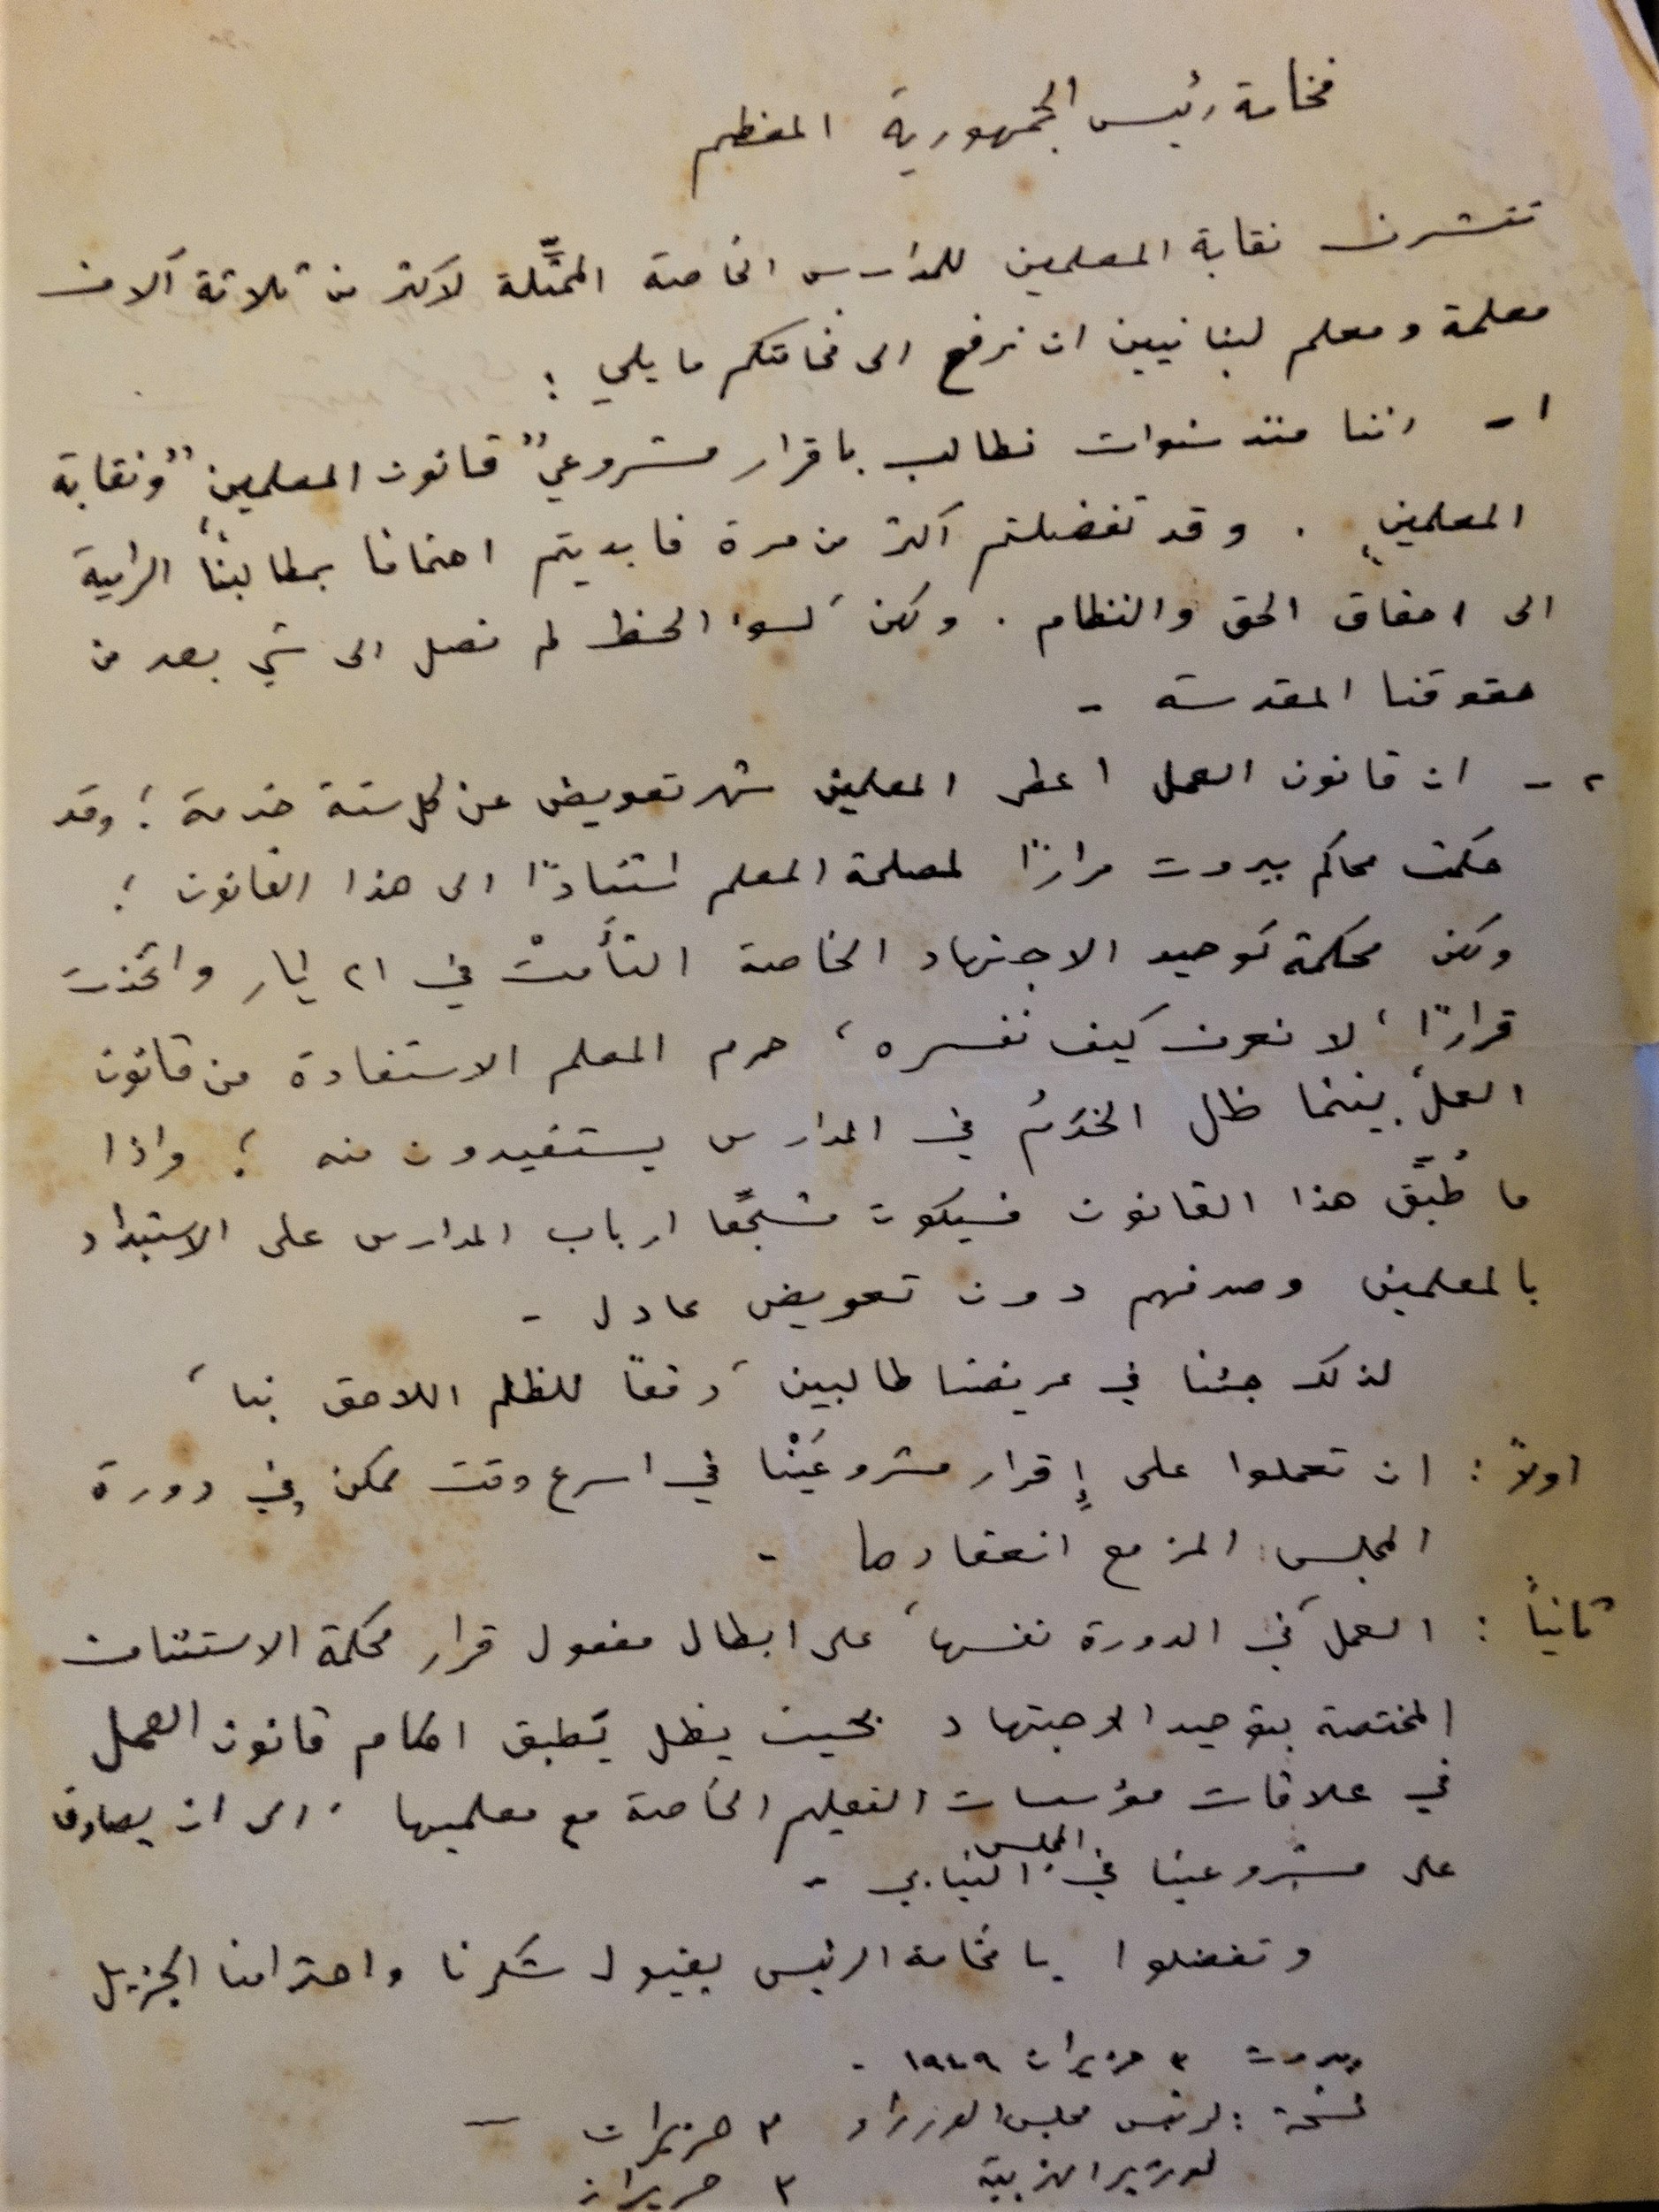 فخامة رئيس الجمهورية المعظم
تتشرف نقابة المعلمين للمدارس الخاصة الممثِّلة لاكثر من ثلاثة آلاف
معلمة ومعلم لبنانيين ان نرفع الى فخامتكم ما يلي :
١ - اننا منذ سنوات نطالب باقرار مشروعي "قانون المعلمين" و"نقابة
المعلمين" . وقد تفضلتم اكثر من مرة فابديتم اهتمامًا بمطالبنا، الرامية
الى احقاق الحق والنظام . ولكن، لسوء الحظ لم نصل الى شيء بعد من
حقوقنا المقدسة -
٢ - ان قانون العمل اعطى المعلمين شهر تعويض عن كل سنة خدمة ؛ وقد
حكمت محاكم بيروت مرارًا لمصلحة المعلم استنادًا الى هذا القانون ؛
ولكن محكمة توحيد الاجتهاد الخاصة التأمتْ في ٢١ ايار واتخذت
قرارًا ، لا نعرف كيف نفسره ، حرم المعلم الاستفادة من قانون
العمل، بينما ظل الخَدَمُ في المدارس يستفيدون منه ؛ واذا
ما طُبِّق هذا القانون فسيكون مشجّعًا ارباب المدارس على الاستبداد
بالمعلمين وصرفهم دون تعويض عادل -
لذلك جئنا في عريضتنا طالبين ، دفعًا للظلم اللاحق بنا ،
اولاً : ان تعملوا على إقرار مشروعَيْنا في اسرع وقت ممكن وفي دورة
المجلس المزمع انعقادها -
ثانياً : العمل، في الدورة نفسها، على ابطال مفعول قرار محكمة الاستئناف
المختصة بتوحيد الاجتهاد بحيث يظل يُطبق احكام قانون العمل
في علاقات مؤسسات التعليم الخاصة مع معلميها ، الى ان يصادق
على مشروعينا في المجلس النيابي -
وتفضلوا يا فخامة الرئيس بقبول شكرنا واحترامنا الجزيل
بيروت ٣ حزيران ١٩٤٩ -
نسخة : لرئيس مجلس الوزراء ٣ حزيران —
لوزير التربية ٣ حزيران